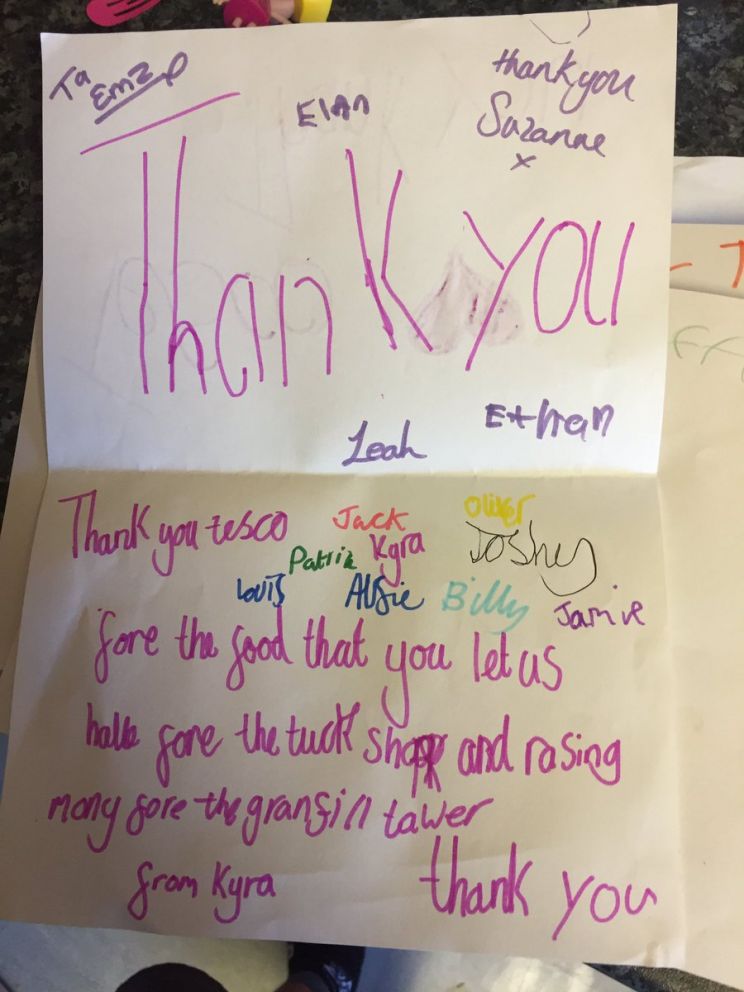 Ta
Emz
Elan
thankyou
Suzanne
x
Thank you
Leah
Ethan
Thank you tesco
Jack
Oliver
Patrik
Kyra
Joshey
Louis
Alfie
Billy
Jamie
fore the food that you let us
halve fore the tuck shop and rasing
mony fore the granfill tawer
from Kyra
thank you